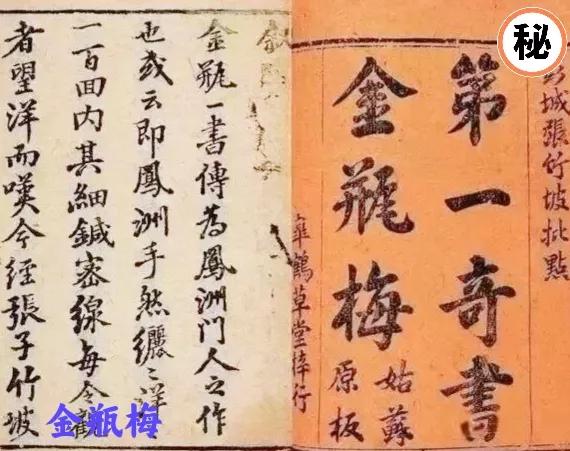 秘
城張竹坡批點
第一奇書
金瓶梅
姑蘇
原板
鶴草堂梓行
金瓶一書傳為鳳洲門人之作
也或云即鳳洲手然纚々洋
一百囬内其細鍼密線每令觀
者望洋而嘆今經張子竹坡
金瓶梅